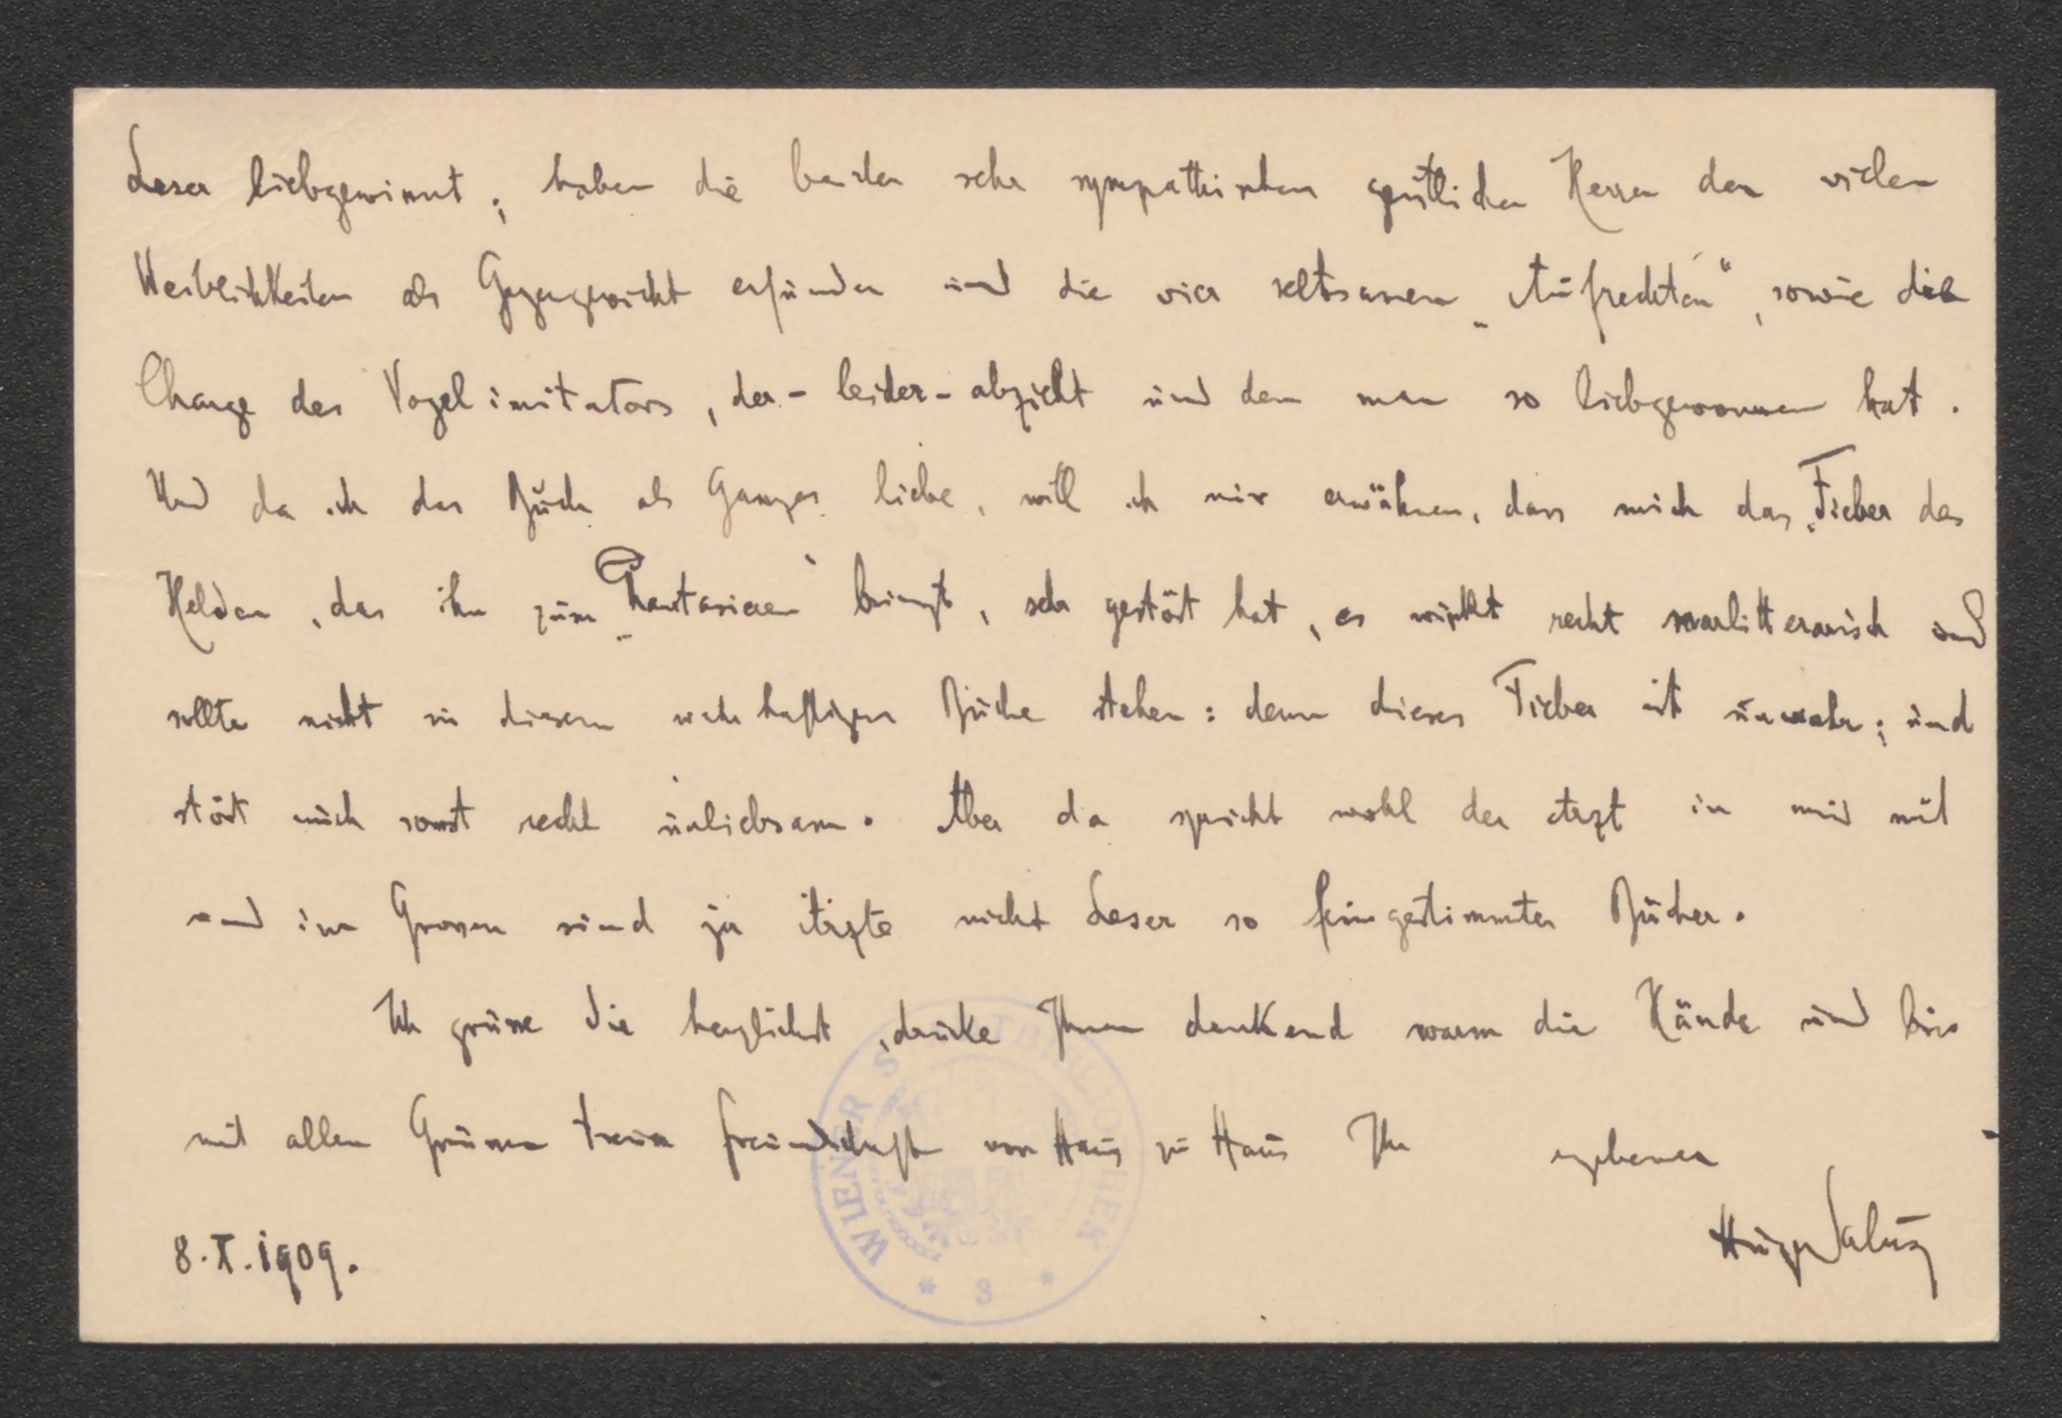 Leser liebgewinnt; haben die beiden sehr sympathischen geistlichen Herren den vielen
Weiblichkeiten als Gegengewicht erfunden und die vier seltsamen „Aufrechten“, sowie die
Charge des Vogelimitators, der - leider - abzieht und den man so liebgewonnen hat.
Und da ich das Buch als Ganzes liebe, will ich nur erwähnen, dass mich das Fieber des
Helden, das ihn zum „Phantasieren“ bringt, sehr gestört hat, es wirkt recht marlitterarisch und
sollte nicht in diesem wahrhaftigen Buche stehen: denn dieses Fieber ist unwahr; und
stört mich sonst recht unliebsam. Aber da spricht wohl der Arzt in mir mit
und im Grossen sind ja Ärzte nicht Leser so feingestimmter Bücher.
Ich grüsse Sie herzlichst, drücke Ihnen dankend warm die Hände und bin
mit allen Grüssen treuer Freundschaft von Haus zu Haus Ihr ergebener
Hugo Salus
8. X. 1909.
WIENER STADTBIBLIOTHEK
* 3 *